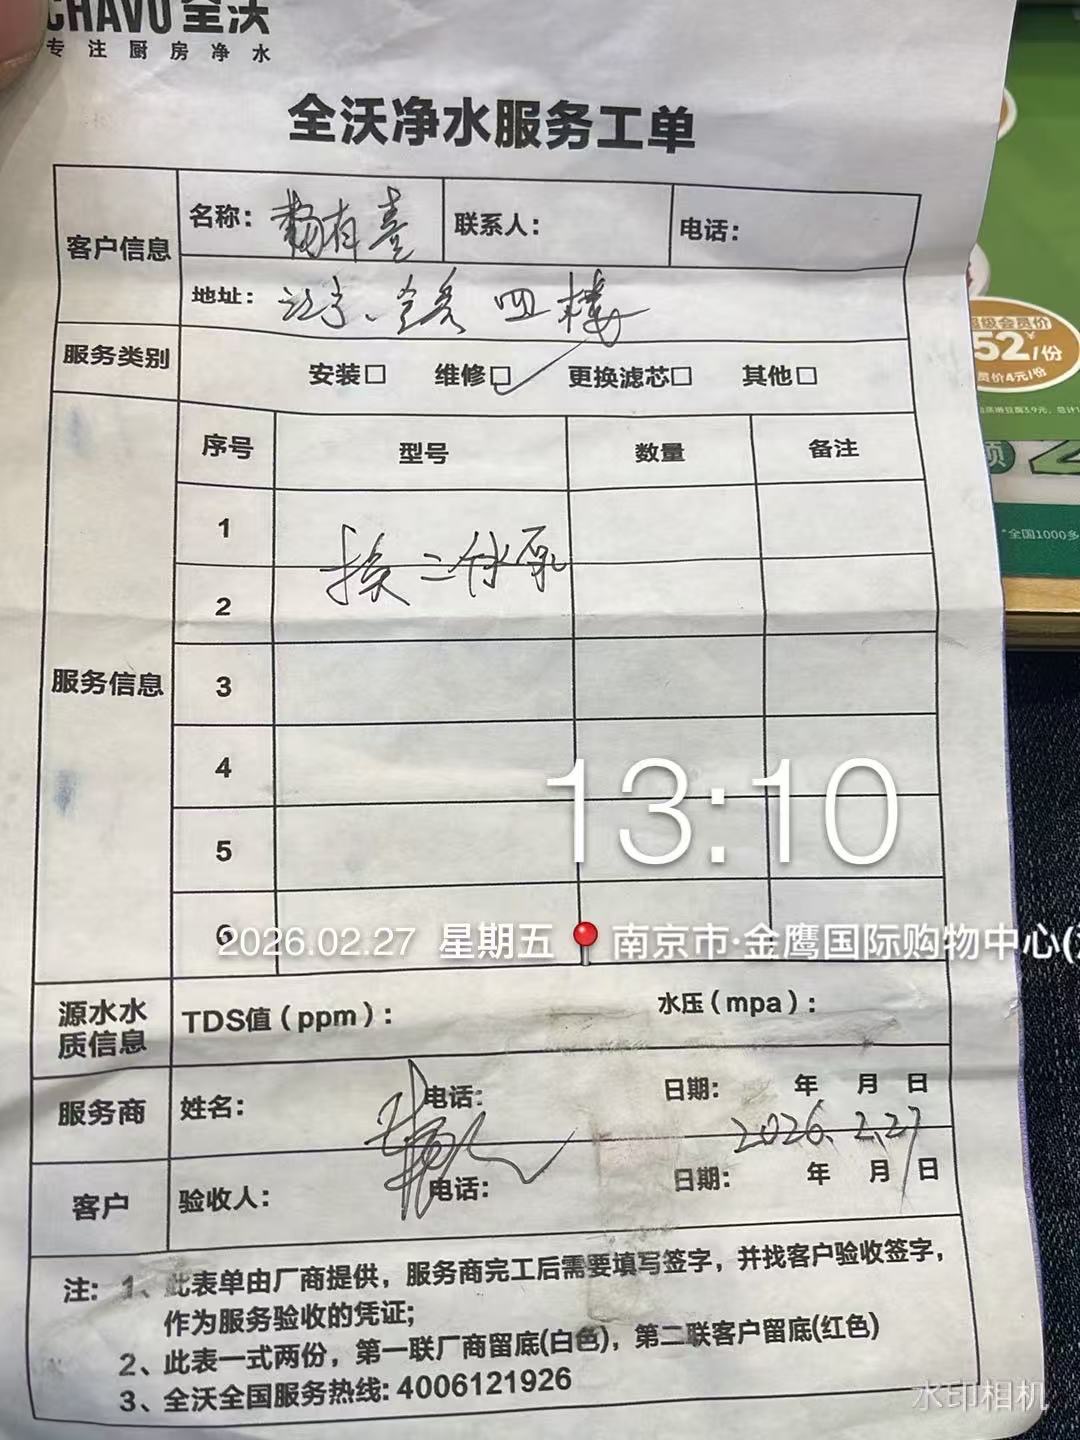 CHAVO 全沃
专注厨房净水
全沃净水服务工单
客户信息 名称：杨有喜 联系人： 电话：
地址：江宁、金鹰四楼
服务类别 安装□ 维修□✓ 更换滤芯□ 其他□
服务信息 序号 型号 数量 备注
1
换二体泵
2
3
4
5
6
13:10
2026.02.27 星期五 南京市·金鹰国际购物中心(
源水水质信息 TDS值（ppm）： 水压（mpa）：
服务商 姓名： 电话： 日期： 年 月 日
2026.2.27
客户 验收人： 电话： 日期： 年 月 日
注：1、此表单由厂商提供，服务商完工后需要填写签字，并找客户验收签字，
作为服务验收的凭证；
2、此表一式两份，第一联厂商留底(白色)，第二联客户留底(红色)
3、全沃全国服务热线：4006121926
超级会员价
52/份
员价4元/份
*全国1000多
水印相机